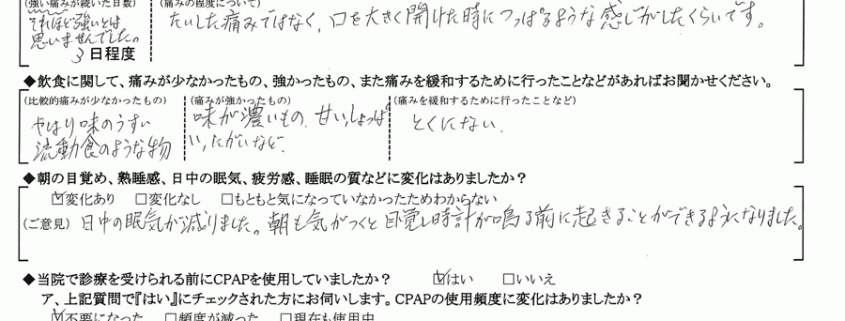 (強い痛みが続いた日数) (痛みの程度について)
それほど強いとは
思いませんでした。
3 日程度
たいした痛みではなく、口を大きく開けた時につっぱるような感じがしたくらいです。
◆飲食に関して、痛みが少なかったもの、強かったもの、また痛みを緩和するために行ったことなどがあればお聞かせください。
(比較的痛みが少なかったもの) (痛みが強かったもの) (痛みを緩和するために行ったことなど)
やはり味のうすい
流動食のような物
味が濃いもの、甘い、しょっぱ
い、にがいなど。
とくにない。
◆朝の目覚め、熟睡感、日中の眠気、疲労感、睡眠の質などに変化はありましたか?
☑変化あり □変化なし □もともと気になっていなかったためわからない
(ご意見) 日中の眠気が減りました。朝も気がつくと目覚し時計が鳴る前に起きることができるようになりました。
◆当院で診療を受けられる前にCPAPを使用していましたか? ☑はい □いいえ
ア、上記質問で『はい』にチェックされた方にお伺いします。CPAPの使用頻度に変化はありましたか?
☑不要になった □頻度が減った □現在も使用中